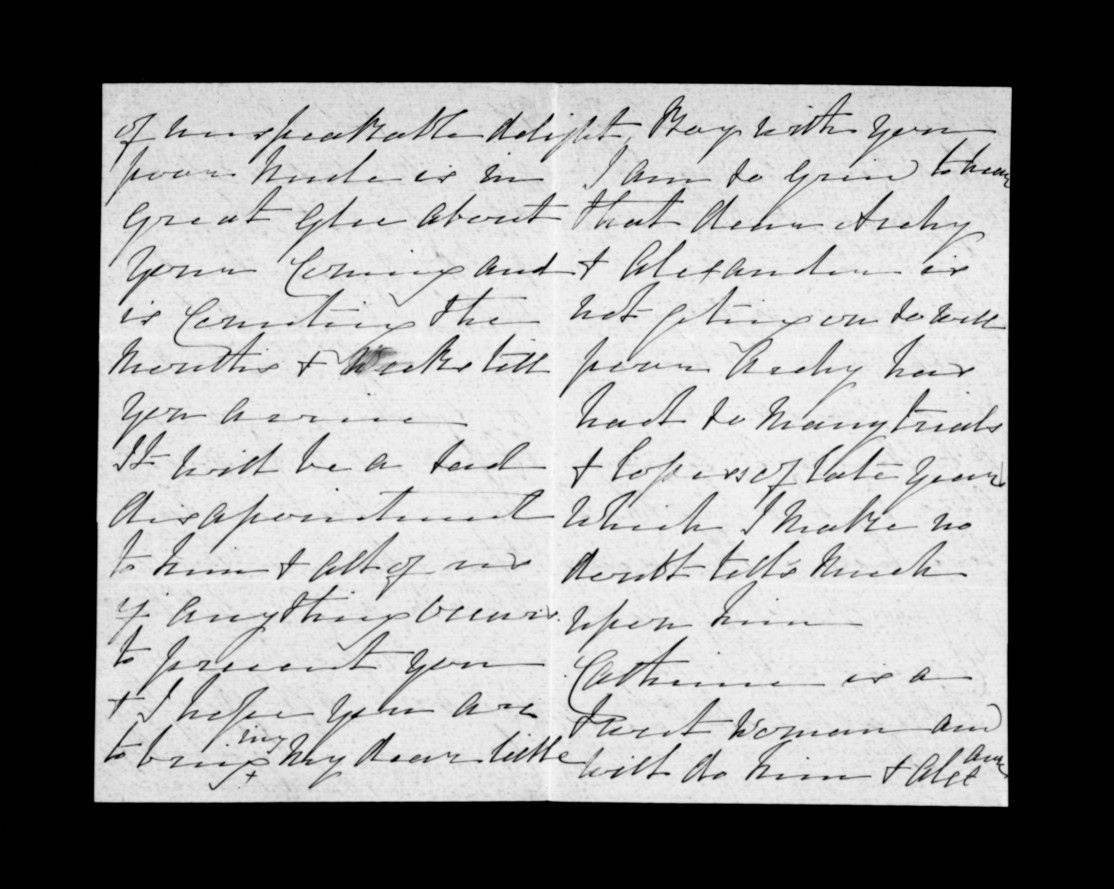 of unspeakable delight
poor Uncle is in
great glee about
your Coming and
is Counting the
Months & Weeks till
you arrive
It will be a sad
disapointment
to him & all of us
if anything occurs
to prevent you
& I hope you are
to bring my dear little
Boy with you
I am so grieved to hear
that dear Archy
& Alexander is
not geting on so well
poor Archy has
had so many trials
& losses of late years
which I make no
doubt tells much
upon him
Catherine is a
woman and
will do him & Alex